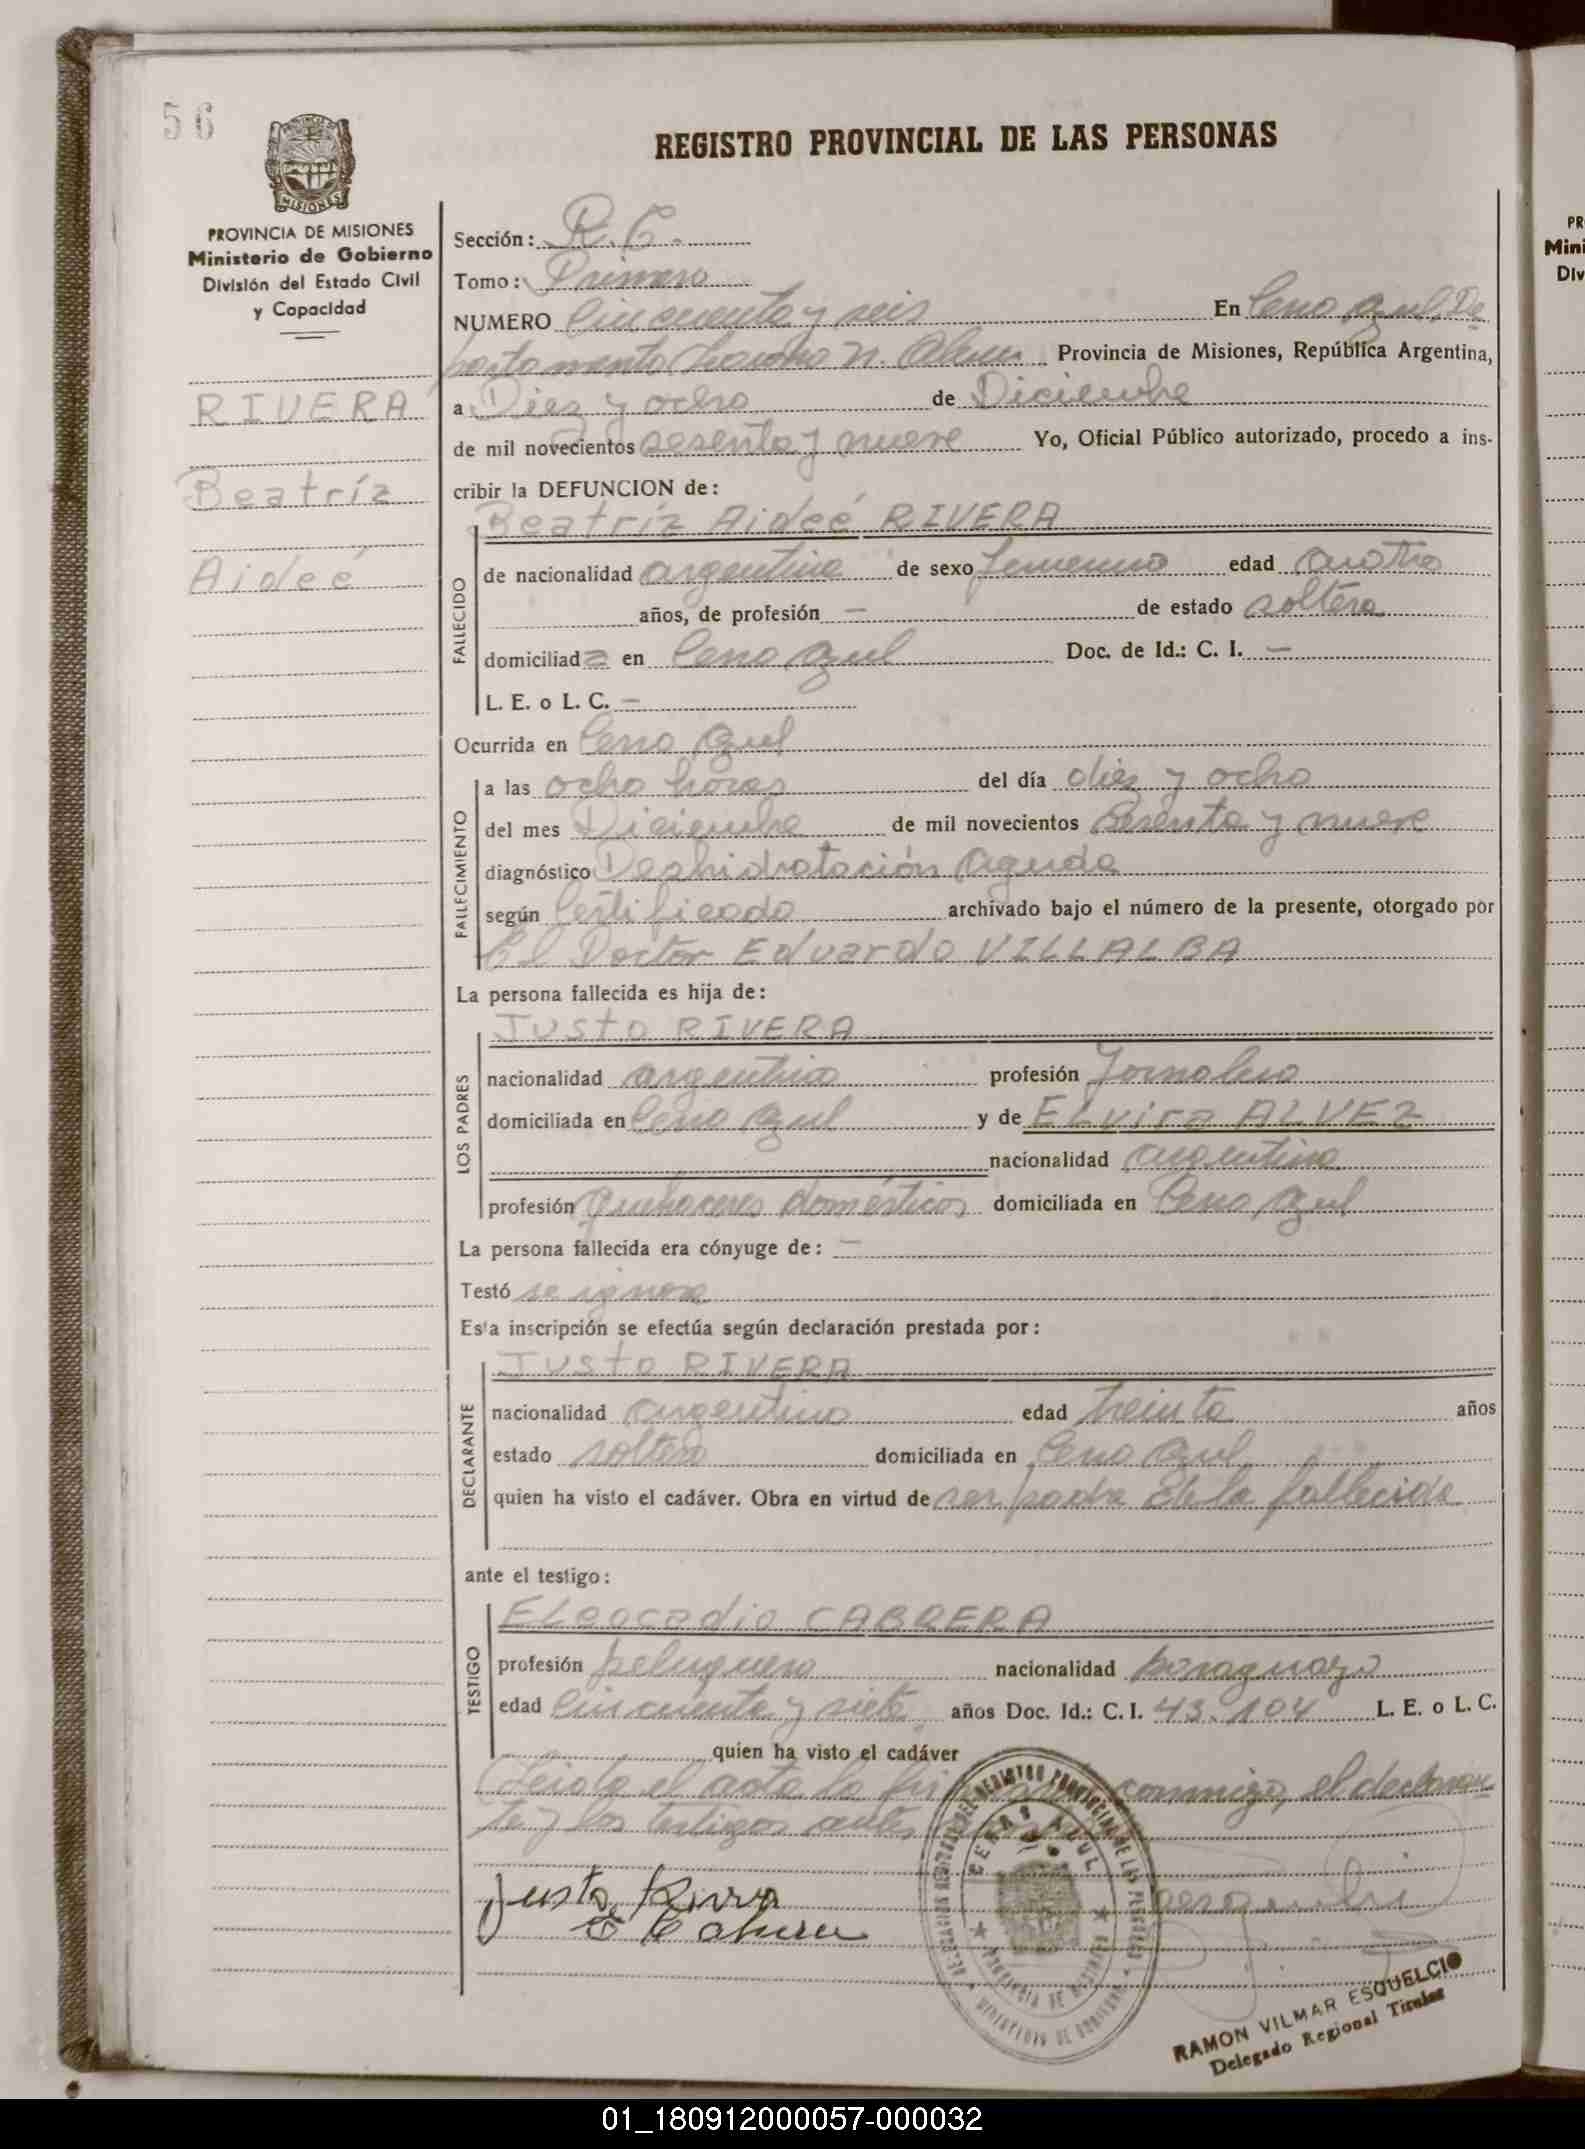 56
PROVINCIA DE MISIONES
Ministerio de Gobierno
División del Estado Civil
y Capacidad
RIVERA
Beatríz
Aideé
REGISTRO PROVINCIAL DE LAS PERSONAS
Sección: R. C.
Tomo: Primero
NUMERO Cincuenta y seis En Cerro Azul, De
partamento Leandro N. Alem Provincia de Misiones, República Argentina,
a Diez y ocho de Diciembre
de mil novecientos sesenta y nueve Yo, Oficial Público autorizado, procedo a ins-
cribir la DEFUNCION de:
Beatríz Aideé RIVERA
FALLECIDO
de nacionalidad argentina de sexo femenino edad cuatro
años, de profesión — de estado soltera
domiciliada en Cerro Azul Doc. de Id.: C. I. —
L. E. o L. C. —
Ocurrida en Cerro Azul
FALLECIMIENTO
a las ocho horas del día diez y ocho
del mes Diciembre de mil novecientos sesenta y nueve
diagnóstico Deshidratación aguda
según Certificado archivado bajo el número de la presente, otorgado por
el Doctor Eduardo VILLALBA
La persona fallecida es hija de:
Justo RIVERA
LOS PADRES
nacionalidad argentina profesión Jornalero
domiciliada en Cerro Azul y de Elvira ALVEZ
nacionalidad argentina
profesión quehaceres domésticos domiciliada en Cerro Azul
La persona fallecida era cónyuge de: —
Testó se ignora
Esta inscripción se efectúa según declaración prestada por:
Justo RIVERA
DECLARANTE
nacionalidad argentino edad treinta años
estado soltero domiciliada en Cerro Azul
quien ha visto el cadáver. Obra en virtud de ser padre de la fallecida
ante el testigo:
Eleocadio CABRERA
TESTIGO
profesión peluquero nacionalidad paraguayo
edad cincuenta y siete años Doc. Id.: C. I. 43.104 L. E. o L. C.
quien ha visto el cadáver
Leida el acta la conmigo, el declaran
te y los testigos antes
Justo Rivera
E Cabrera
CERRO AZUL
PROVINCIA DE MISIONES
MINISTERIO DE GOBIERNO
RAMON VILMAR ESQUELCIO
Delegado Regional Titular
PR
Mini
Div
01_180912000057-000032